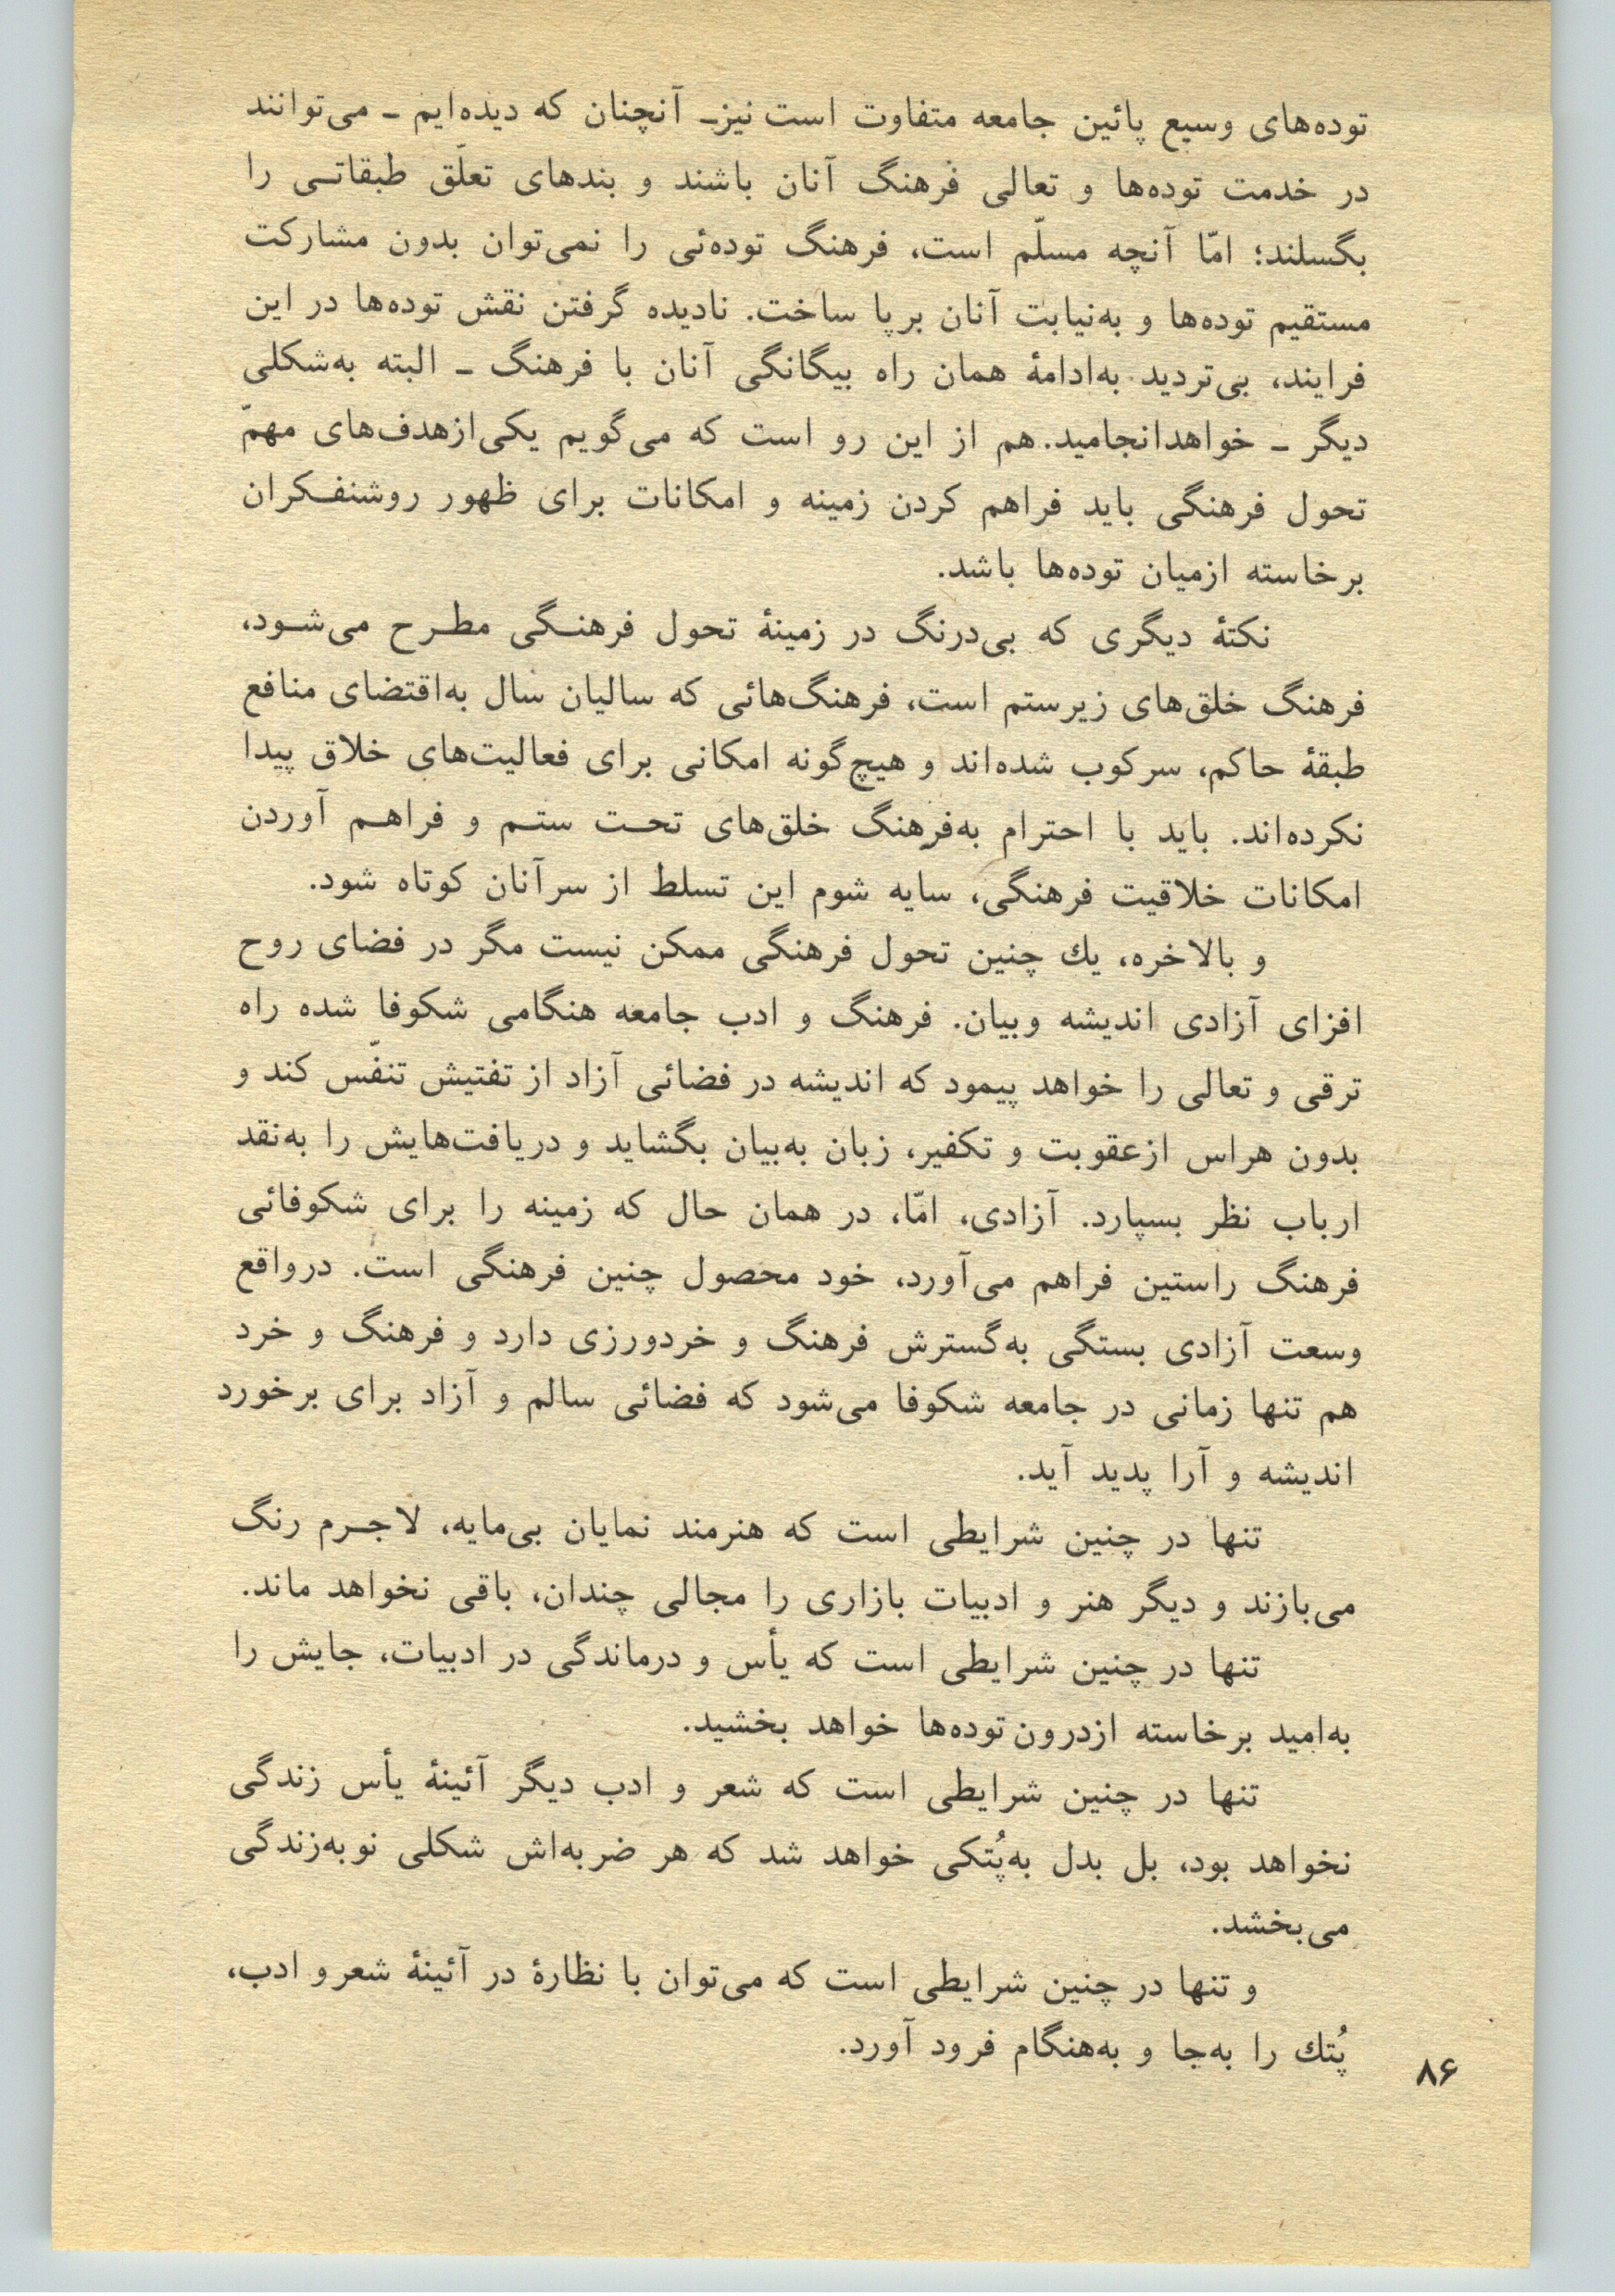 توده‌های وسیع پائین جامعه متفاوت است نیز ـ آنچنان که دیده‌ایم ـ می‌توانند
در خدمت توده‌ها و تعالی فرهنگ آنان باشند و بندهای تعلّق طبقاتـی را
بگسلند؛ امّا آنچه مسلّم است، فرهنگ توده‌ئی را نمی‌توان بدون مشارکت
مستقیم توده‌ها و به‌نیابت آنان برپا ساخت. نادیده گرفتن نقش توده‌ها در این
فرایند، بی‌تردید به‌ادامهٔ همان راه بیگانگی آنان با فرهنگ ـ البته به‌شکلی
دیگر ـ خواهدانجامید. هم از این رو است که می‌گویم یکی‌ازهدف‌های مهمّ
تحول فرهنگی باید فراهم کردن زمینه و امکانات برای ظهور روشنفـکران
برخاسته ازمیان توده‌ها باشد.
نکتهٔ دیگری که بی‌درنگ در زمینهٔ تحول فرهنـگی مطـرح می‌شـود،
فرهنگ خلق‌های زیرستم است، فرهنگ‌هائی که سالیان سال به‌اقتضای منافع
طبقهٔ حاکم، سرکوب شده‌اند و هیچ‌گونه امکانی برای فعالیت‌های خلاق پیدا
نکرده‌اند. باید با احترام به‌فرهنگ خلق‌های تحـت ستـم و فراهـم آوردن
امکانات خلاقیت فرهنگی، سایه شوم این تسلط از سرآنان کوتاه شود.
و بالاخره، یك چنین تحول فرهنگی ممکن نیست مگر در فضای روح
افزای آزادی اندیشه وبیان. فرهنگ و ادب جامعه هنگامی شکوفا شده راه
ترقی و تعالی را خواهد پیمود که اندیشه در فضائی آزاد از تفتیش تنفّس کند و
بدون هراس ازعقوبت و تکفیر، زبان به‌بیان بگشاید و دریافت‌هایش را به‌نقد
ارباب نظر بسپارد. آزادی، امّا، در همان حال که زمینه را برای شکوفائی
فرهنگ راستین فراهم می‌آورد، خود محصول چنین فرهنگی است. درواقع
وسعت آزادی بستگی به‌گسترش فرهنگ و خردورزی دارد و فرهنگ و خرد
هم تنها زمانی در جامعه شکوفا می‌شود که فضائی سالم و آزاد برای برخورد
اندیشه و آرا پدید آید.
تنها در چنین شرایطی است که هنرمند نمایان بی‌مایه، لاجـرم رنگ
می‌بازند و دیگر هنر و ادبیات بازاری را مجالی چندان، باقی نخواهد ماند.
تنها در چنین شرایطی است که یأس و درماندگی در ادبیات، جایش را
به‌امید برخاسته ازدرون توده‌ها خواهد بخشید.
تنها در چنین شرایطی است که شعر و ادب دیگر آئینهٔ یأس زندگی
نخواهد بود، بل بدل به‌پُتکی خواهد شد که هر ضربه‌اش شکلی نوبه‌زندگی
می‌بخشد.
و تنها در چنین شرایطی است که می‌توان با نظارهٔ در آئینهٔ شعرو ادب،
پُتك را به‌جا و به‌هنگام فرود آورد.
۸۶